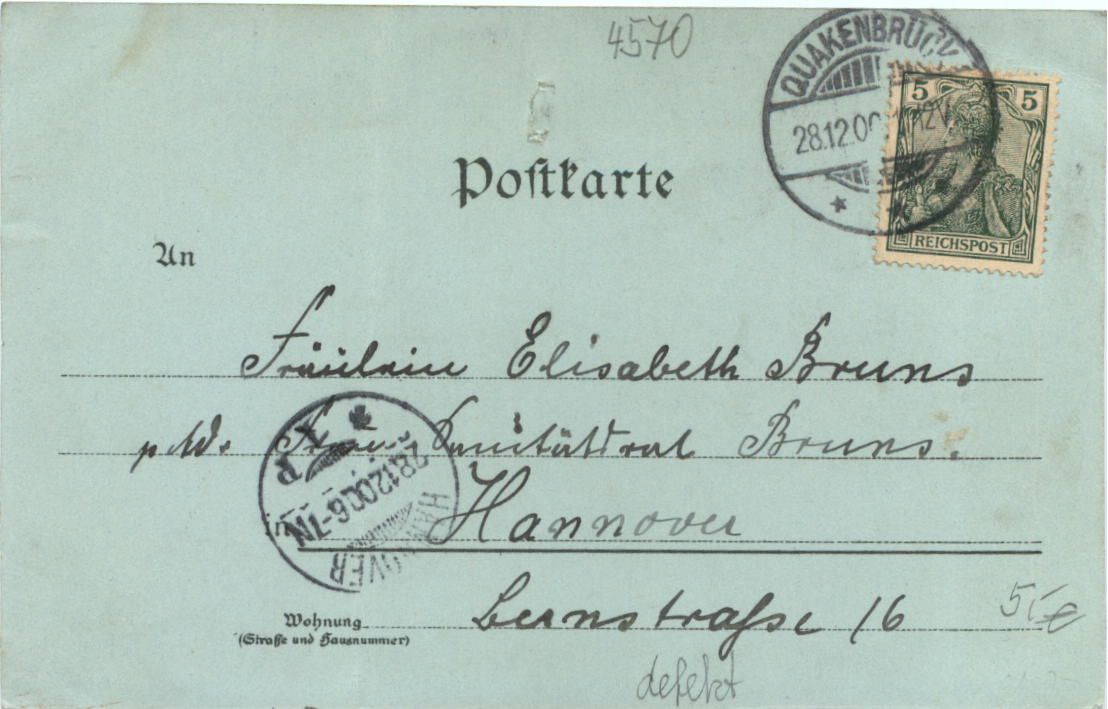 4570
QUAKENBRÜCK
28.12.00. 12V
5 5
REICHSPOST
Postkarte
An
Fräulein Elisabeth Bruns
p. Ad. Frau Sanitätsrat Bruns.
in Hannover
HANNOVER
28.12.00. 6-7N
Wohnung
(Straße und Hausnummer)
Bernstraße 16
5,- €
defekt